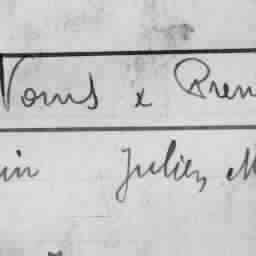 Noms x Pren
in Julien, M